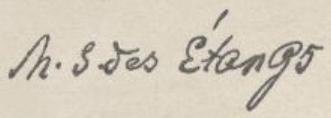 N. S des Étangs